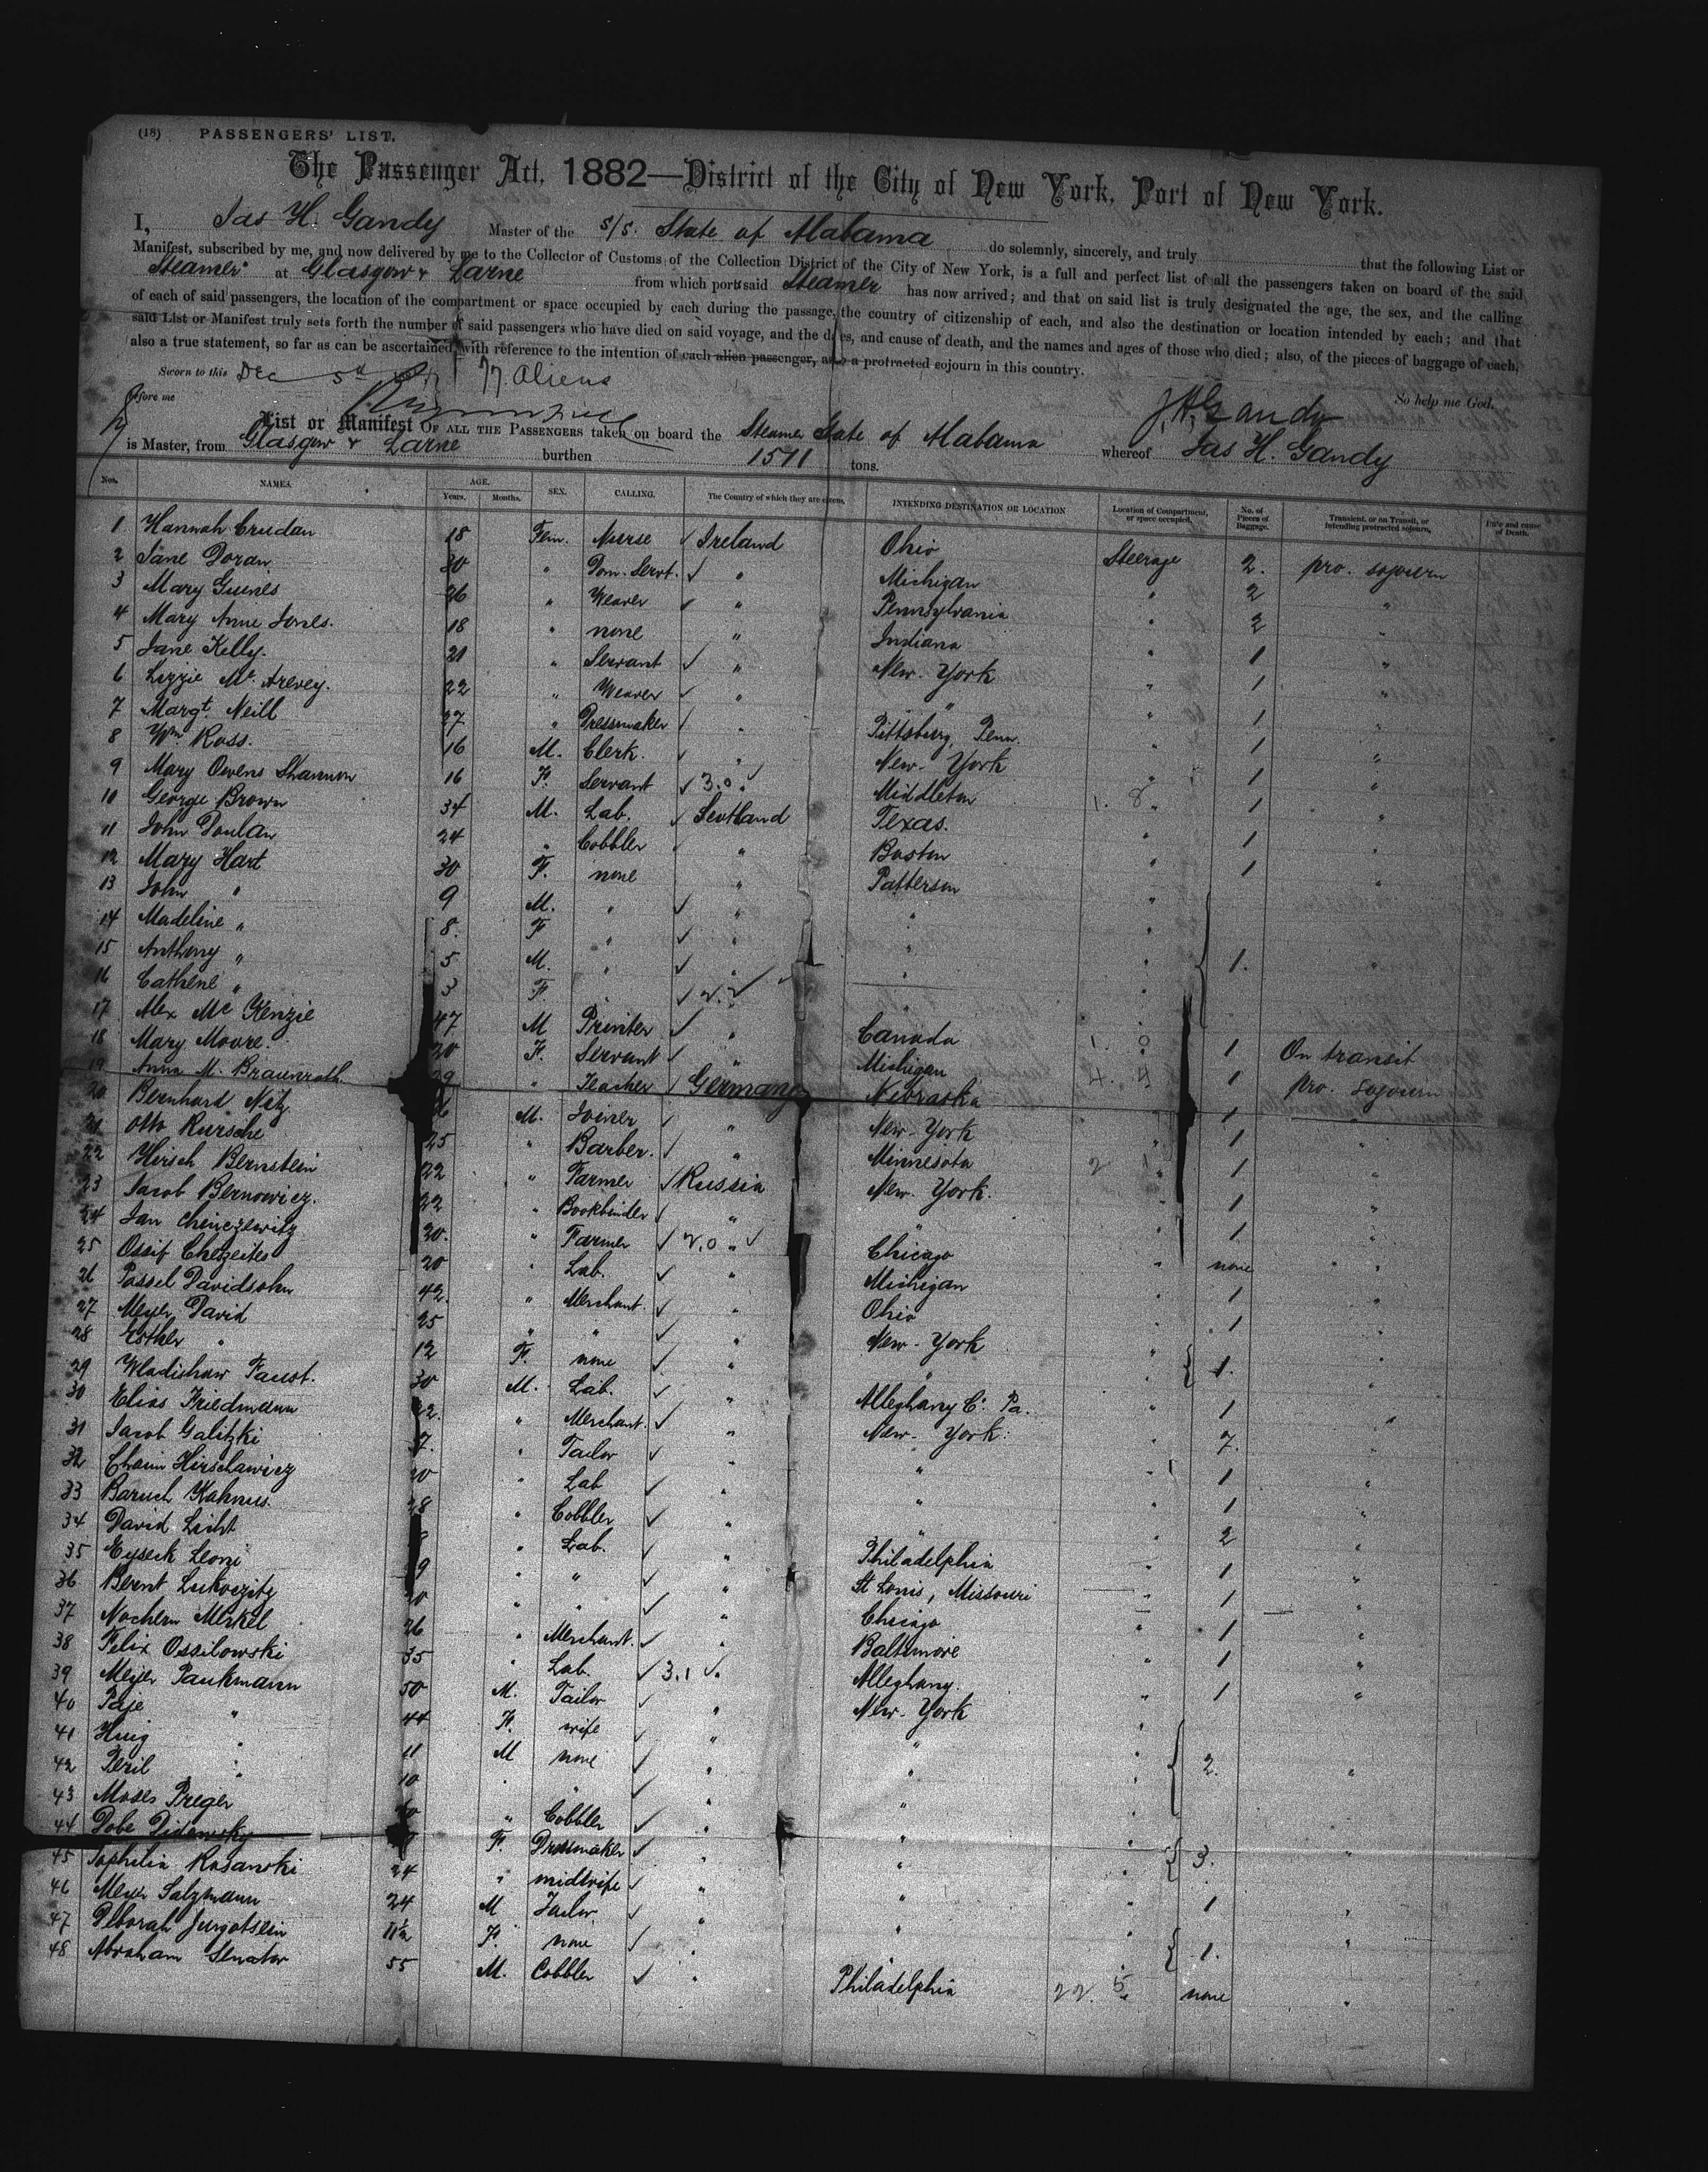 (18) PASSENGERS' LIST.
The Passenger Act, 1882—District of the City of New York, Port of New York.
I, Jas H. Gandy Master of the S/S. State of Alabama do solemnly, sincerely, and truly that the following List or
Manifest, subscribed by me, and now delivered by me to the Collector of Customs of the Collection District of the City of New York, is a full and perfect list of all the passengers taken on board of the said
Steamer at Glasgow & Larne from which ports said Steamer has now arrived; and that on said list is truly designated the age, the sex, and the calling
of each of said passengers, the location of the compartment or space occupied by each during the passage, the country of citizenship of each, and also the destination or location intended by each; and that
said List or Manifest truly sets forth the number of said passengers who have died on said voyage, and the dates, and cause of death, and the names and ages of those who died; also, of the pieces of baggage of each,
also a true statement, so far as can be ascertained, with reference to the intention of each alien passenger, as to a protracted sojourn in this country.
Sworn to this Dec 5th 77 Aliens
So help me God.
before me
J. H. Gandy
List or Manifest OF ALL THE PASSENGERS taken on board the Steamer State of Alabama whereof Jas H. Gandy
is Master, from Glasgow & Larne burthen 1511 tons.
Nos. NAMES. AGE. Years. Months. SEX. CALLING. The Country of which they are citizens. INTENDING DESTINATION OR LOCATION Location of Compartment, or space occupied. No. of Pieces of Baggage. Transient, or on Transit, or intending protracted sojourn. Date and cause of Death.
1 Hannah Crudan 18 Fem. Nurse Ireland Ohio Steerage 2. pro. sojourn
2 Jane Doran 30 " Dom. Servt. " Michigan " 2 "
3 Mary Guines 26 " Weaver " Pennsylvania " 2 "
4 Mary Anne Jones. 18 " none " Indiana " 1 "
5 Jane Kelly. 21 " Servant " New-York " 1 "
6 Lizzie Mc Arevey. 22 " Weaver " " " 1 "
7 Margt. Neill 27 " Dressmaker " Pittsburg, Penn. " 1 "
8 Wm Ross. 16 M. Clerk. " New-York " 1 "
9 Mary Owens Shannon 16 F. Servant 3.0 " Middleton 1. 8 " 1 "
10 George Brown 34 M. Lab. Scotland Texas. " 1 "
11 John Doulan 24 " Cobbler " Boston " 1 "
12 Mary Hart 30 F. none " Patterson "
13 John " 9 M. " " " "
14 Madeline " 8. F " " " " 1. "
15 Anthony " 5 M. " " "
16 Cathene " 3 F. " "
17 Alex Mc Kenzie 47 M Printer " Canada 1. 0 1 On transit
18 Mary Moore. 20 F. Servant " Michigan 4. 4 1 pro. sojourn
19 Anna M. Braunroth 29 " Teacher Germany Nebraska 1 "
20 Bernhard Netz M. Joiner " New-York " 1 "
21 Otto Kursche 25 " Barber. " Minnesota 2 1 "
22 Hirsch Bernstein 22 " Farmer Russia New-York. " 1 "
23 Jacob Bernowicz. 22 " Bookbinder " " " 1 "
24 Jan Chinczewitz 30. " Farmer 2.0 " Chicago " none "
25 Ossif Chezeites 20 " Lab. " Michigan " 1 "
26 Possel Davidsohn 42. " Merchant. " Ohio " 1 "
27 Meyer David 25 " " " New-York "
28 Esther " 12 F. none " " " 1. "
29 Wladishaw Faust. 30 M. Lab. " Alleghany Co. Pa. " 1 "
30 Elias Friedmann 22. " Merchant. " New-York. " 7. "
31 Jacob Galitzki " Tailor " " " 1 "
32 Chaim Hirschawicz 20 " Lab " 1 "
33 Baruch Kahnus. 28 " Cobbler " " 2 "
34 David Licht " Lab. " Philadelphia " 1 "
35 Eyseck Leoni " " " St Louis, Missouri " 1 "
36 Bernt Lukoczitz 20 " " " Chicago " 1 "
37 Nochem Merkel 26 " Merchant. " Baltimore 1 "
38 Felix Ossilowski 35 " Lab. 3.1 " Alleghany. " 1 "
39 Meyer Paukmann 50 M. Tailor " New-York "
40 Paje " 44 F. wife " " "
41 Huig " 11 M none " " " 2. "
42 Peril " 10 " " " " "
43 Moses Preger " Cobbler " " "
44 Dobe Didowsky F. Dressmaker " " " 3. "
45 Tophilia Rosanski 24 " midwife " " "
46 Meyer Salzmann 24 M Tailor " " " 1 "
47 Deborah Jurgotsein 11½ F. none " " " 1. "
48 Abraham Senator 55 M. Cobbler " Philadelphia 22. 5 none "